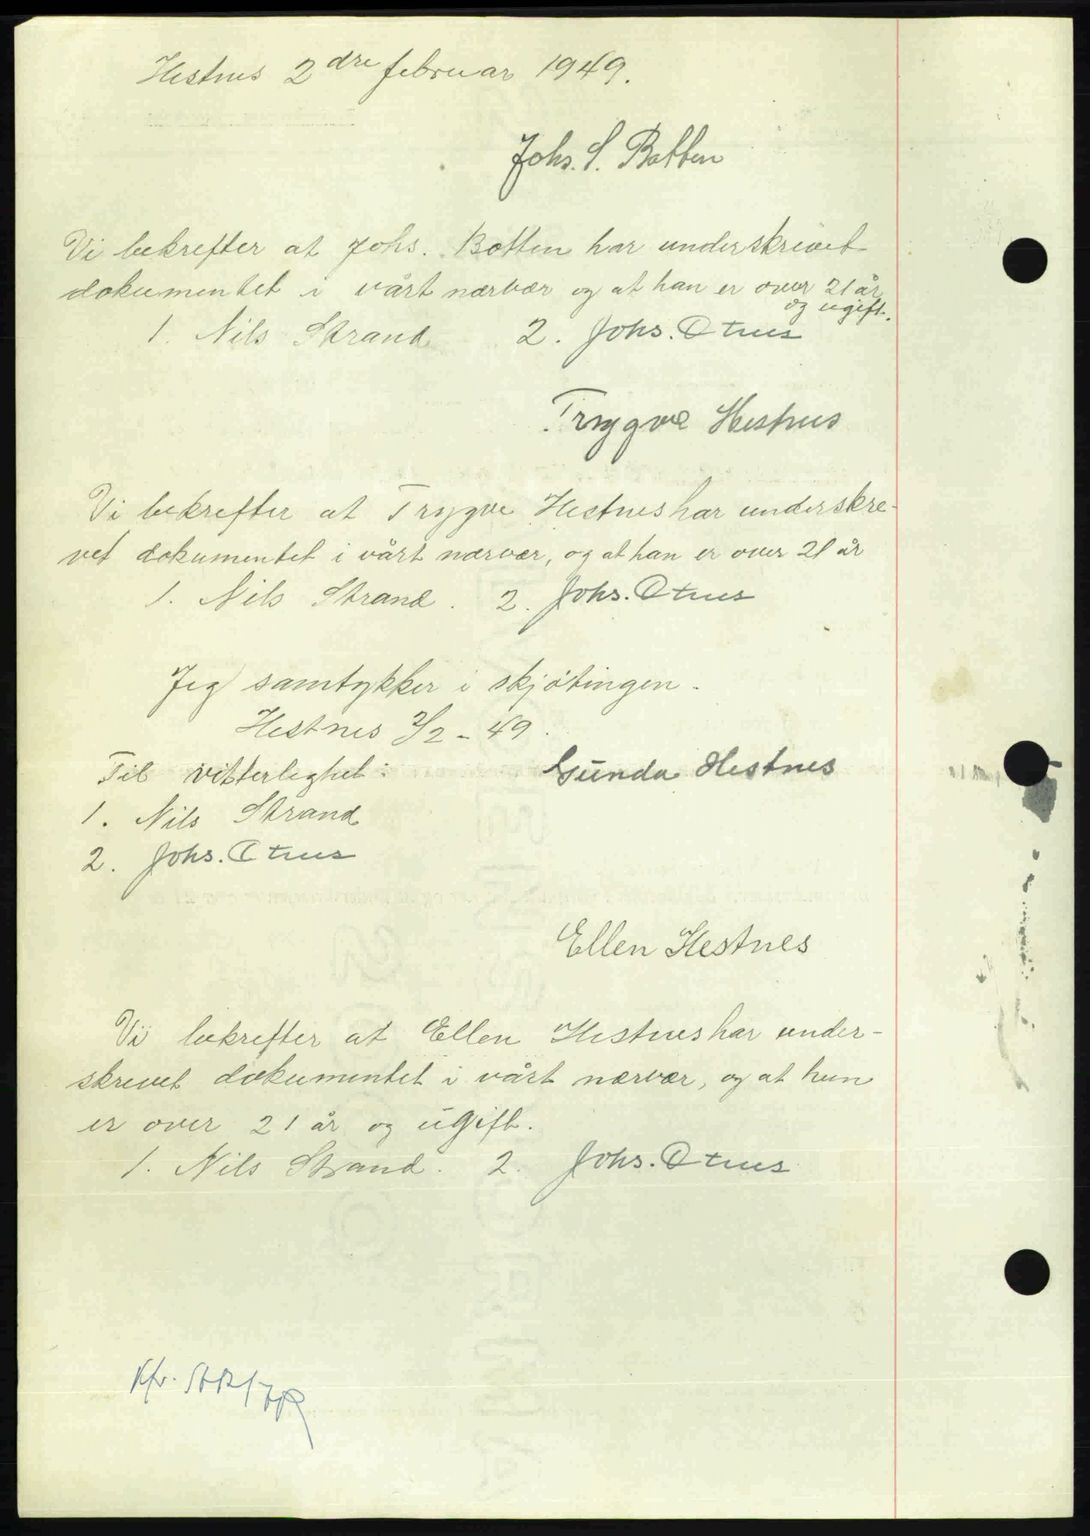 Hestnes 2 dre februar 1949.
Johs. S. Botten
Vi bekrefter at Johs. Botten har underskrevet
dokumentet i vårt nærvær og at han er over 21 år
og ugift.
1. Nils Strand 2. Johs. Otnes
Trygve Hestnes
Vi bekrefter at Trygve Hestnes har underskre-
vet dokumentet i vårt nærvær, og at han er over 21 år
1. Nils Strand. 2. Johs. Otnes
Jeg samtykker i skjøtingen.
Hestnes 2/2 - 49.
Til vitterlighet:
Gunda Hestnes
1. Nils Strand
2. Johs. Otnes
Ellen Hestnes
Vi bekrefter at Ellen Hestnes har under-
skrevet dokumentet i vårt nærvær, og at hun
er over 21 år og ugift.
1. Nils Strand. 2. Johs. Otnes